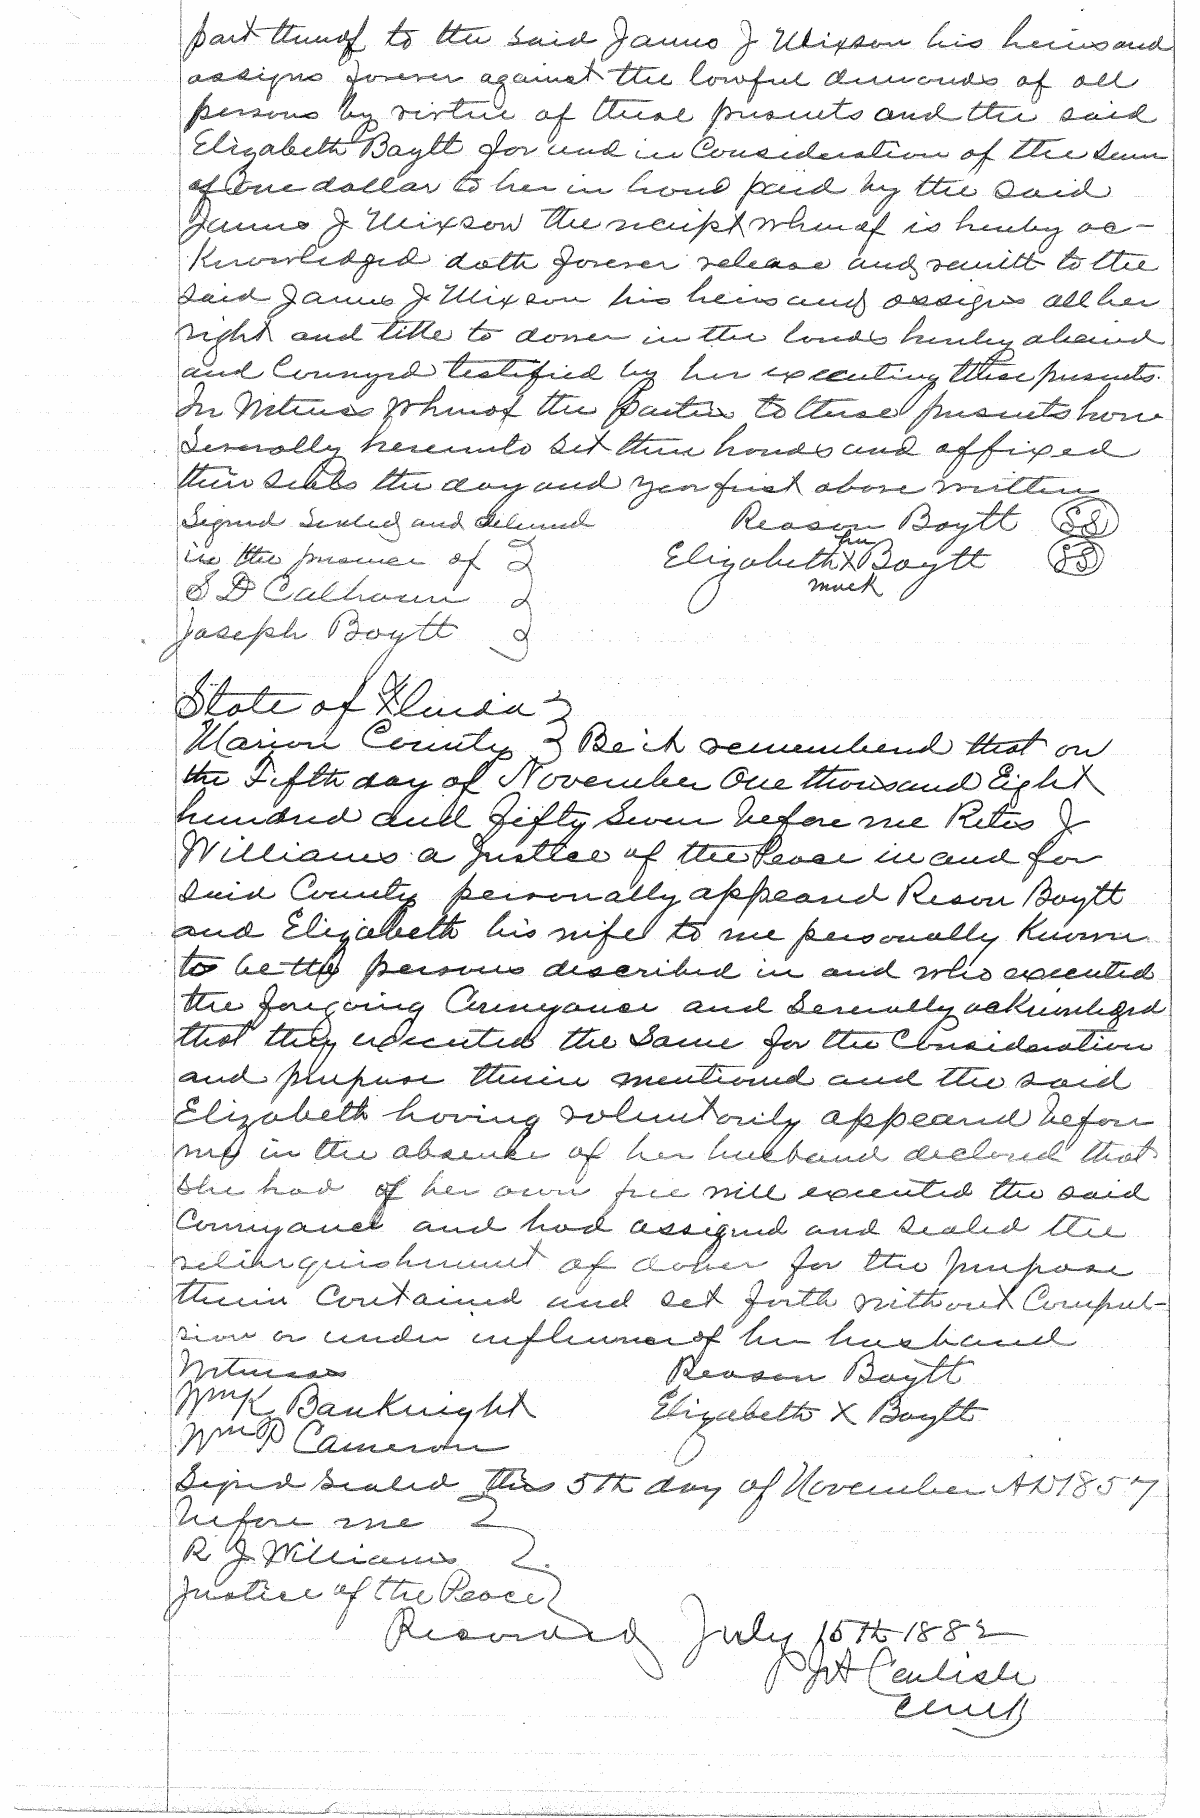 part thereof to the said James J Mixson his heirs and
assigns forever against the lawful demands of all
persons by virtue of these presents and the said
Elizabeth Boytt for and in Consideration of the sum
of one dollar to her in hand paid by the said
James J Mixson the receipt whereof is hereby ac-
Knowledged doth forever release and remitt to the
said James J Mixson his heirs and assigns all her
right and title to dower in the lands hereby aliened
and Conveyed testified by her executing these presents.
In Witness Whereof the parties to these presents have
Severally hereunto set their hands and affixed
their seals the day and year first above written
Signed Sealed and delivered
Reason Boytt SS
in the presence of
Elizabeth her X mark Boytt SS
S D Calhoun
Joseph Boytt
State of Florida
Marion County Be it remembered that on
the Fifth day of November One thousand Eight
hundred and fifty Seven before me Retus J
Williams a Justice of the Peace in and for
said County personally appeared Reson Boytt
and Elizabeth his wife to me personally Known
to be the persons described in and who executed
the foregoing Conveyance and Severally acknowledged
that they executed the Same for the Consideration
and purpose therein mentioned and the said
Elizabeth having voluntarily appeared before
me in the absence of her husband declared that
she had of her own free will executed the said
Conveyance and had assigned and sealed the
relinquishment of dower for the purpose
therein Contained and set forth without Compul-
sion or under influence of her husband
Witnesses
Reason Boytt
Wm K Bauknight
Elizabeth X Boytt
Wm P Cameron
Signed Sealed this 5th day of November AD 1857
before me
R J Williams
Justice of the Peace
Recorded July 15th 1882
Carlisle
Clerk